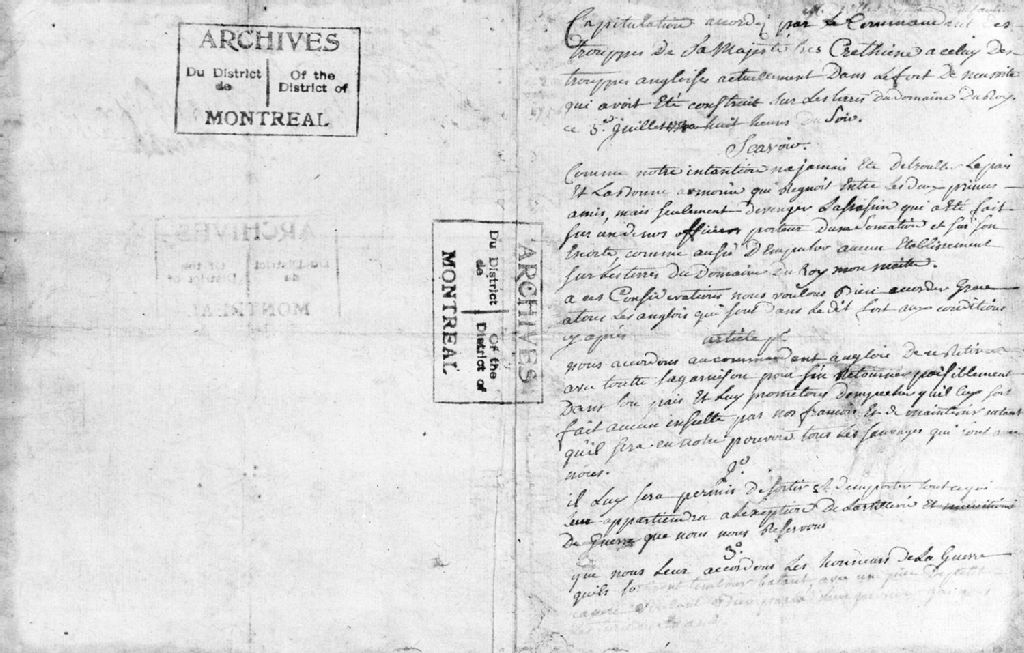 ARCHIVES
Du District de | Of the District of
MONTREAL
ARCHIVES
Du District de | Of the District of
MONTREAL
Capitulation accordée par Le Commandant des
trouppes de Sa Majesté tres Crethiene a celuy des
trouppes angloises actuellement Dans Le fort de necessité
qui avoit Eté construit sur Les terres du domaine Du Roy
ce 3e juillet a huit heures du Soir.
Scavoir.
Comme notre intention na jamais Eté de troubler La paix
Et La bonne armonie qui Regnoit Entre les deux princes
amis, mais seulement de venger L'assassin qui a Eté fait
sur un de nos officiers porteur d'une sommation et sur son
Escorte, comme aussi D'Empecher aucun Etablissement
sur Les terres du Domaine du Roy mon maitre.
a ces Considerations nous voulons bien accorder grace
a tous Les anglois qui sont dans Le dit fort aux conditions
cy apres
article 1er
nous accordons au commandant anglois De se Retirer
avec toutte sa garnison pour s'en Retourner paisiblement
Dans son pais Et Luy promettons D'empecher qu'il luy soit
fait aucun insulte par nos francois Et de maintenir autant
qu'il sera en notre pouvoir tous Les sauvages qui sont avec
nous.
2o
il Luy sera permis De sortir Et d'emporter tout ce qui
leur appartiendra a L'exception de L'artillerie Et munitions
De Guerre que nous nous Reservons
3o
que nous Leur accordons Les honneurs de La Guerre
qu'ils sortiront tambour batant avec une piece de petit
canon